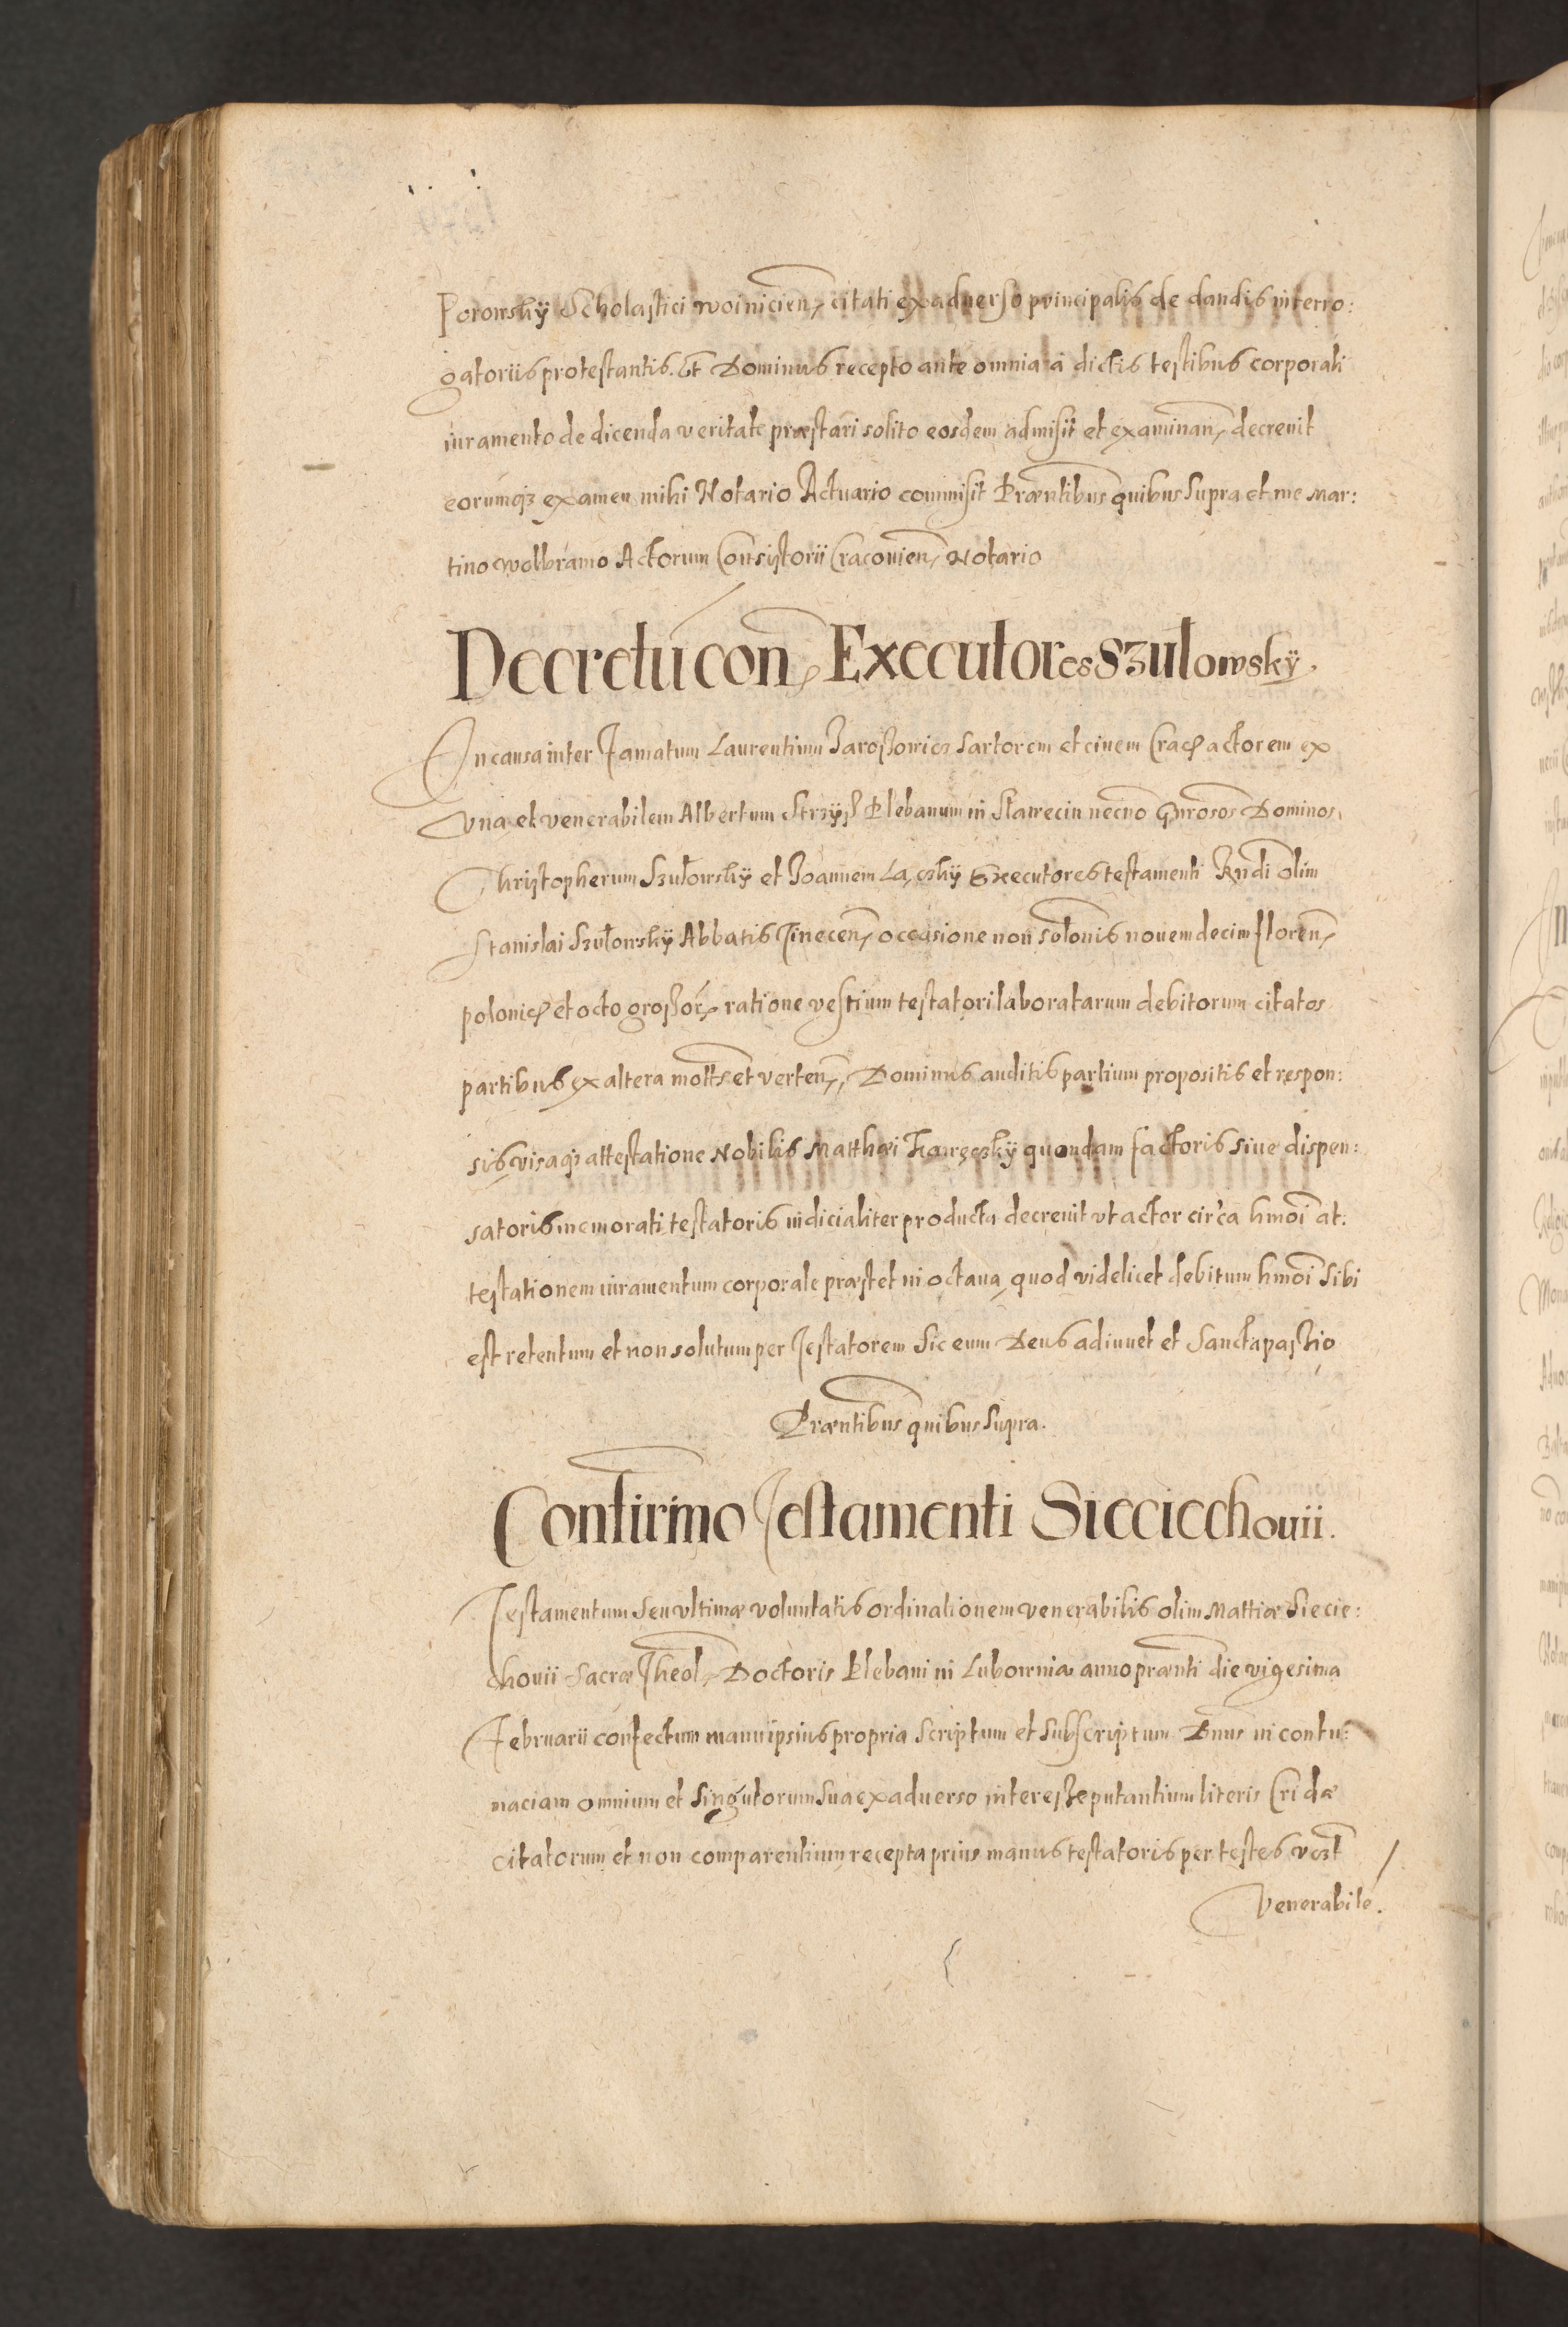 Porowsky Scholastici woinicien, citati ex aduerso principalis de dandis interro:
gatoriis protestantis. Et Dominus recepto ante omnia a dictis testibus corporali
iuramento de dicenda veritate præstari solito eosdem admisit et examinan, decreuit
eorumq3 examen mihi Notario Actuario commisit Præntibus quibus supra et me Mar:
tino Wolbramo Actorum Consistorii Cracouien, Notario
Decretu con, Executores Szułowsky.
In causa inter famatum Laurentium Jaroszowicz sartorem et ciuem Crac, actorem ex
vna et venerabilem Albertum Strzysz Plebanum in Stawecin necno Gnrosos Dominos
Christopherum Szułowsky et Joannem Łączky Executores testamenti Rndi olim
Stanislai Szułowsky Abbatis Tinecen, occasione non solonis nouemdecim floren,
polonic, et octo grossor, ratione vestium testatori laboratarum debitorum citatos
partibus ex altera motts et verten, Dominus auditis partium propositis et respon:
sis, visaq3 attestatione Nobilis Matthæi quondam factoris siue dispen:
satoris memorati testatoris iudicialiter producta decreuit vt actor circa hmoi at:
testationem iuramentum corporale præstet in octaua, quod videlicet debitum hmoi sibi
est retentum et non solutum per Testatorem Sic eum Deus adiuuet et Sancta passio
Præntibus quibus supra.
Confirmo Testamenti Sieciechouii.
Testamentum seu vltimæ voluntatis ordinationem venerabilis olim Mattiæ Siecie:
chouii Sacræ Theol, Doctoris Plebani in Lubownia anno prænti die vigesima
Februarii confectum manu ipsius propria scriptum et subscriptum Dnus in contu:
maciam omnium et singulorum sua ex aduerso interesse putantium literis Cridæ
citatorum et non comparentium recepta prius manus testatoris per testes vozt
Venerabile.